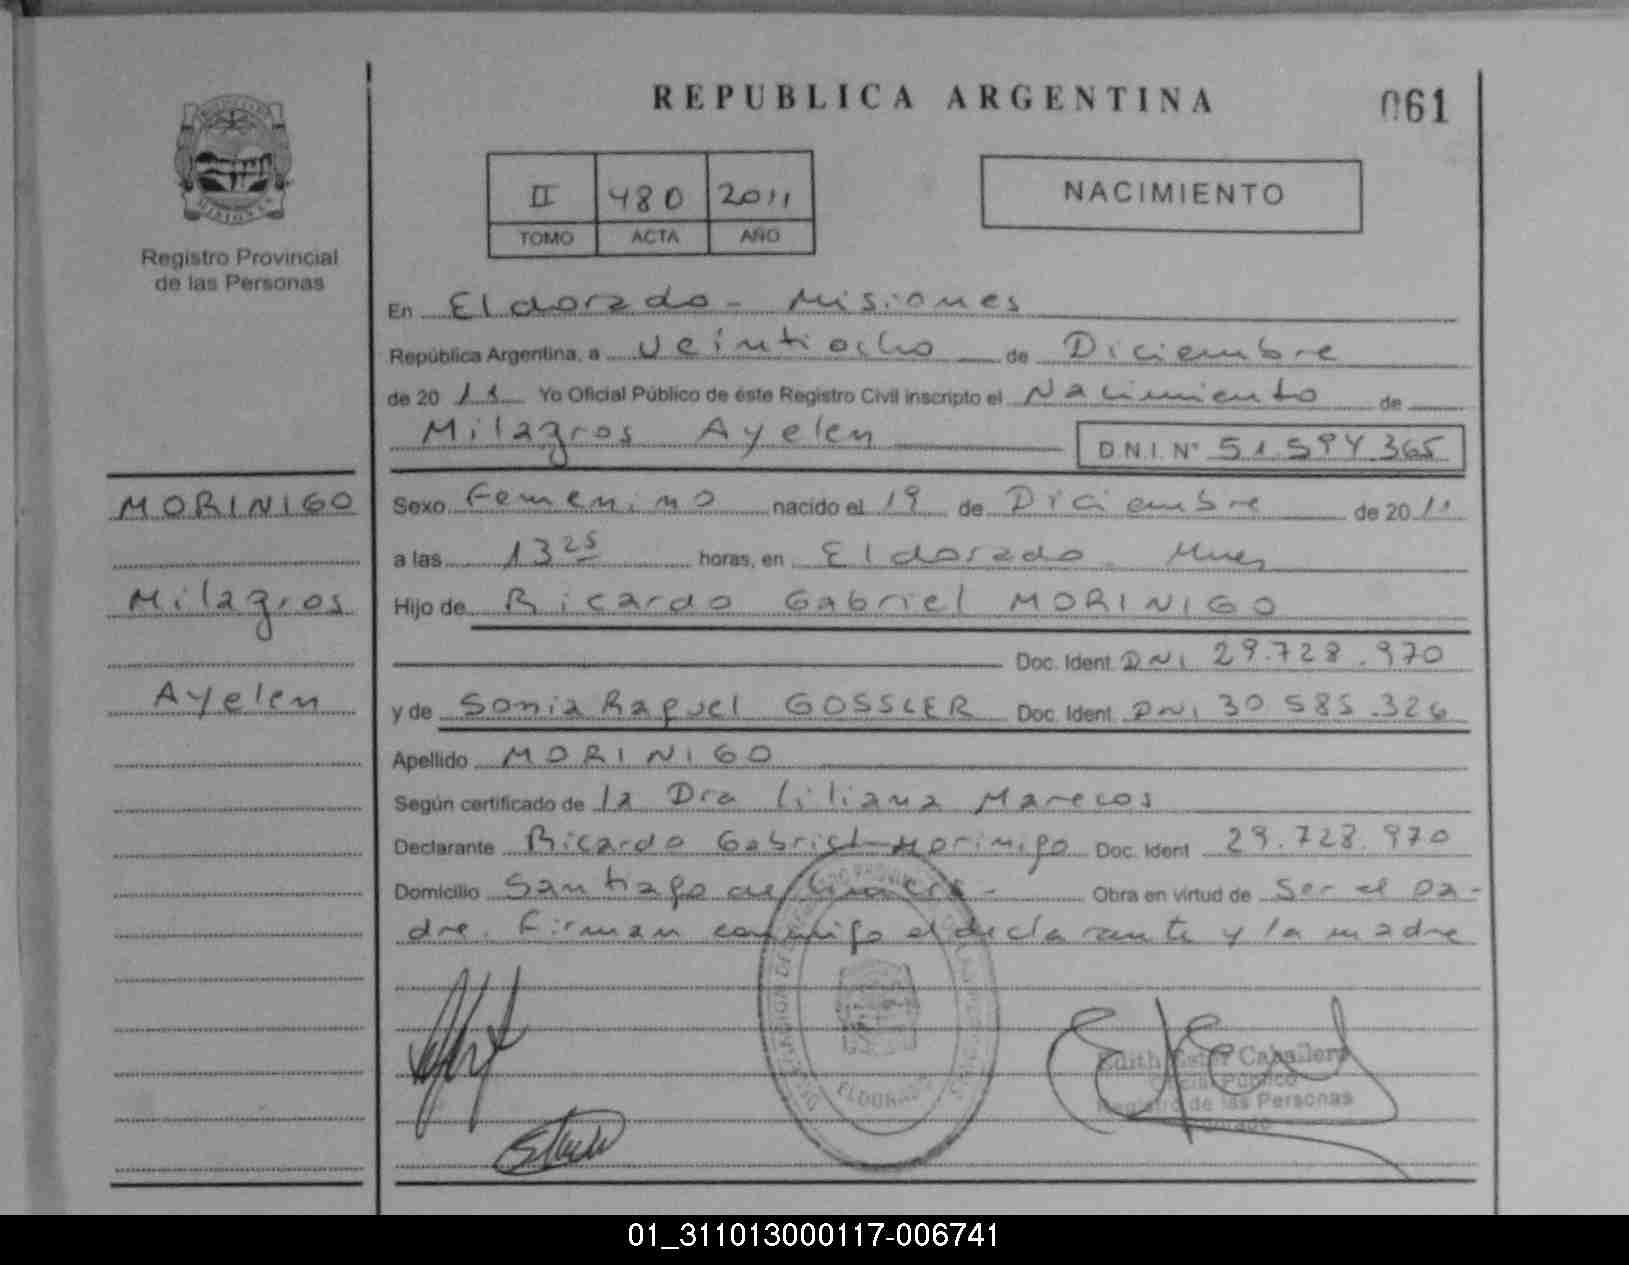 REPUBLICA ARGENTINA
061
II 480 2011
TOMO ACTA AÑO
NACIMIENTO
Registro Provincial
de las Personas
En Eldorado - Misiones
República Argentina, a Veintiocho de Diciembre
de 20 11 Yo Oficial Público de éste Registro Civil inscripto el Nacimiento de
Milagros Ayelen
D.N.I. Nº 51.594.365
MORINIGO
Milagros
Ayelen
Sexo Femenino nacido el 19 de Diciembre de 20 11
a las 13 25 horas, en Eldorado
Hijo de Ricardo Gabriel MORINIGO
Doc. Ident. DNI 29.728.970
y de Sonia Raquel GOSSLER Doc. Ident. DNI 30 585.326
Apellido MORINIGO
Según certificado de la Dra Liliana Marecos
Declarante Ricardo Gabriel Morinigo Doc. Ident 29.728.970
Domicilio Santiago de Liniers - Obra en virtud de Ser el pa-
dre. Firman conmigo el declarante y la madre
ELDORADO
Edith Ester Caballero
Oficial Público
Registro de las Personas
Eldorado
01_311013000117-006741